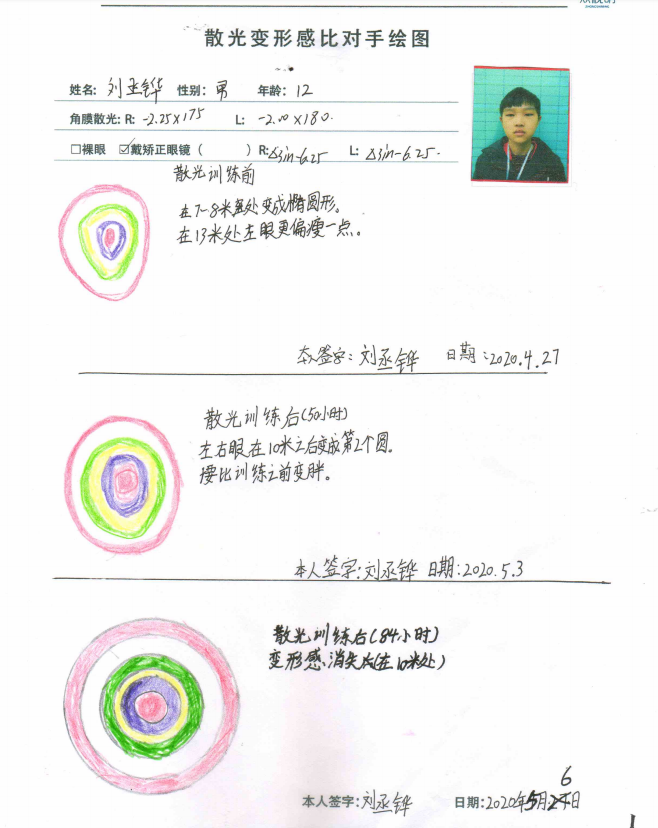 散光变形感比对手绘图
姓名: 刘丞铧 性别: 男 年龄: 12
角膜散光: R: -2.25×175 L: -2.00×180.
□裸眼 ☑戴矫正眼镜 ( ) R: △3in-6.25 L: △3in-6.25.
散光训练前
在7-8米处变成椭圆形。
在13米处左眼更偏瘦一点。
本人签字: 刘丞铧 日期: 2020.4.27
散光训练后(50小时)
左右眼在10米之后变成第2个圆.
要比训练之前变胖。
本人签字: 刘丞铧 日期: 2020.5.3
散光训练后(84小时)
变形感、消失
(在10米处)
本人签字: 刘丞铧 日期: 2020年5月6日